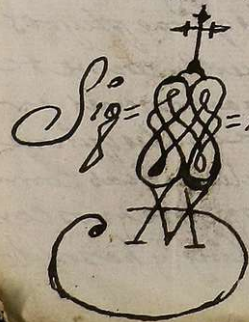 Sig= =